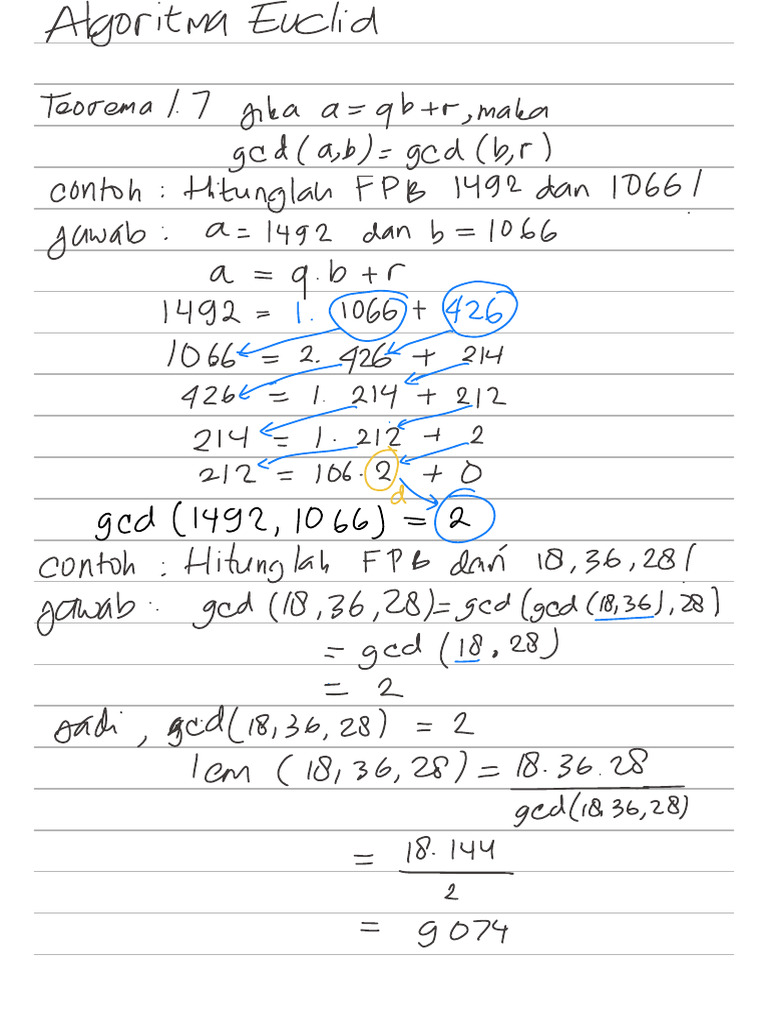 Algoritma Euclid
Teorema 1.7 jika a = qb+r, maka
gcd (a,b) = gcd (b,r)
contoh : Hitunglah FPB 1492 dan 1066!
jawab : a = 1492 dan b = 1066
a = q.b + r
1492 = 1. 1066 + 426
1066 = 2. 426 + 214
426 = 1. 214 + 212
214 = 1. 212 + 2
212 = 106. 2 + 0
d
gcd (1492, 1066) = 2
contoh : Hitunglah FPB dari 18, 36, 28!
jawab : gcd (18, 36, 28) = gcd (gcd (18,36), 28)
= gcd (18, 28)
= 2
Jadi, gcd (18, 36, 28) = 2
lcm (18, 36, 28) = 18. 36. 28
gcd (18, 36, 28)
= 18. 144
2
= 9074